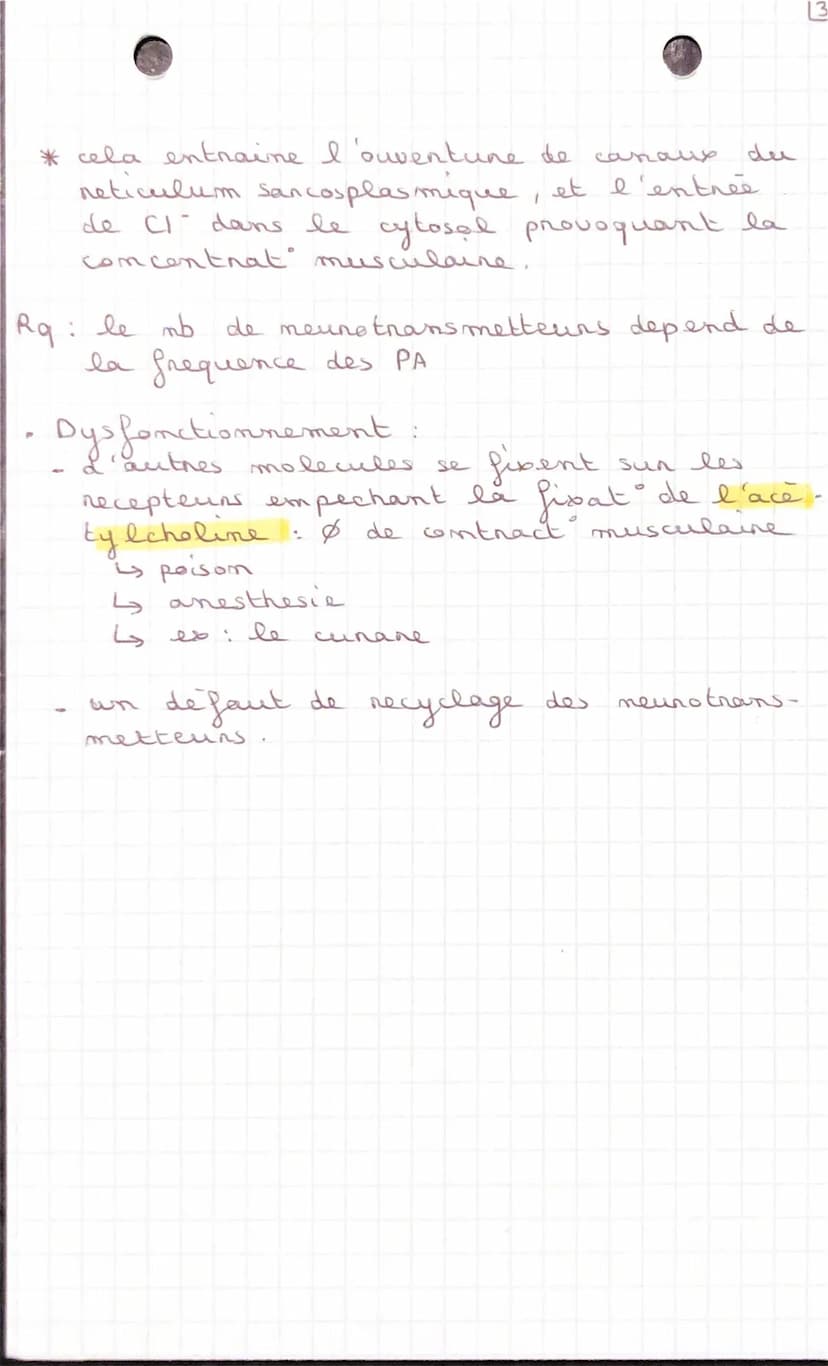 3
* cela entraine l'ouverture de canaux du
reticulum sarcosplasmique, et l'entrée
de Cl⁻ dans le cytosol provoquant la
concentrat° musculaire.
Rq : le nb de neurotransmetteurs depend de
la frequence des PA
• Dysfonctionnement :
- d'autres molecules se fixent sur les
recepteurs empechant la fixat° de l'acé-
tylcholine : ∅ de contract° musculaire
↳ poison
↳ anesthesie
↳ ex : le curare
- un défaut de recyclage des neurotrans-
metteurs.